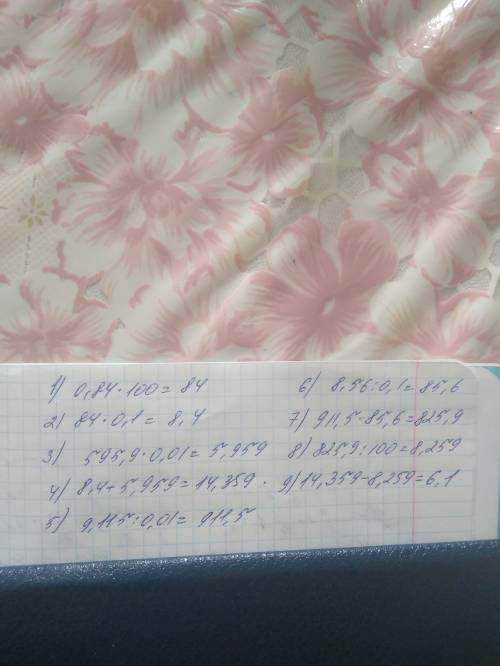 1) 0,84·100=84
2) 84·0,1=8,4
3) 595,9·0,01=5,959
4) 8,4+5,959=14,359.
5) 9,115:0,01=911,5
6) 8,56:0,1=85,6
7) 911,5-85,6=825,9
8) 825,9:100=8,259
9) 14,359-8,259=6,1